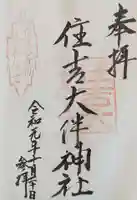 奉拝
住吉大伴神社
令和元年十一月十日
参拝